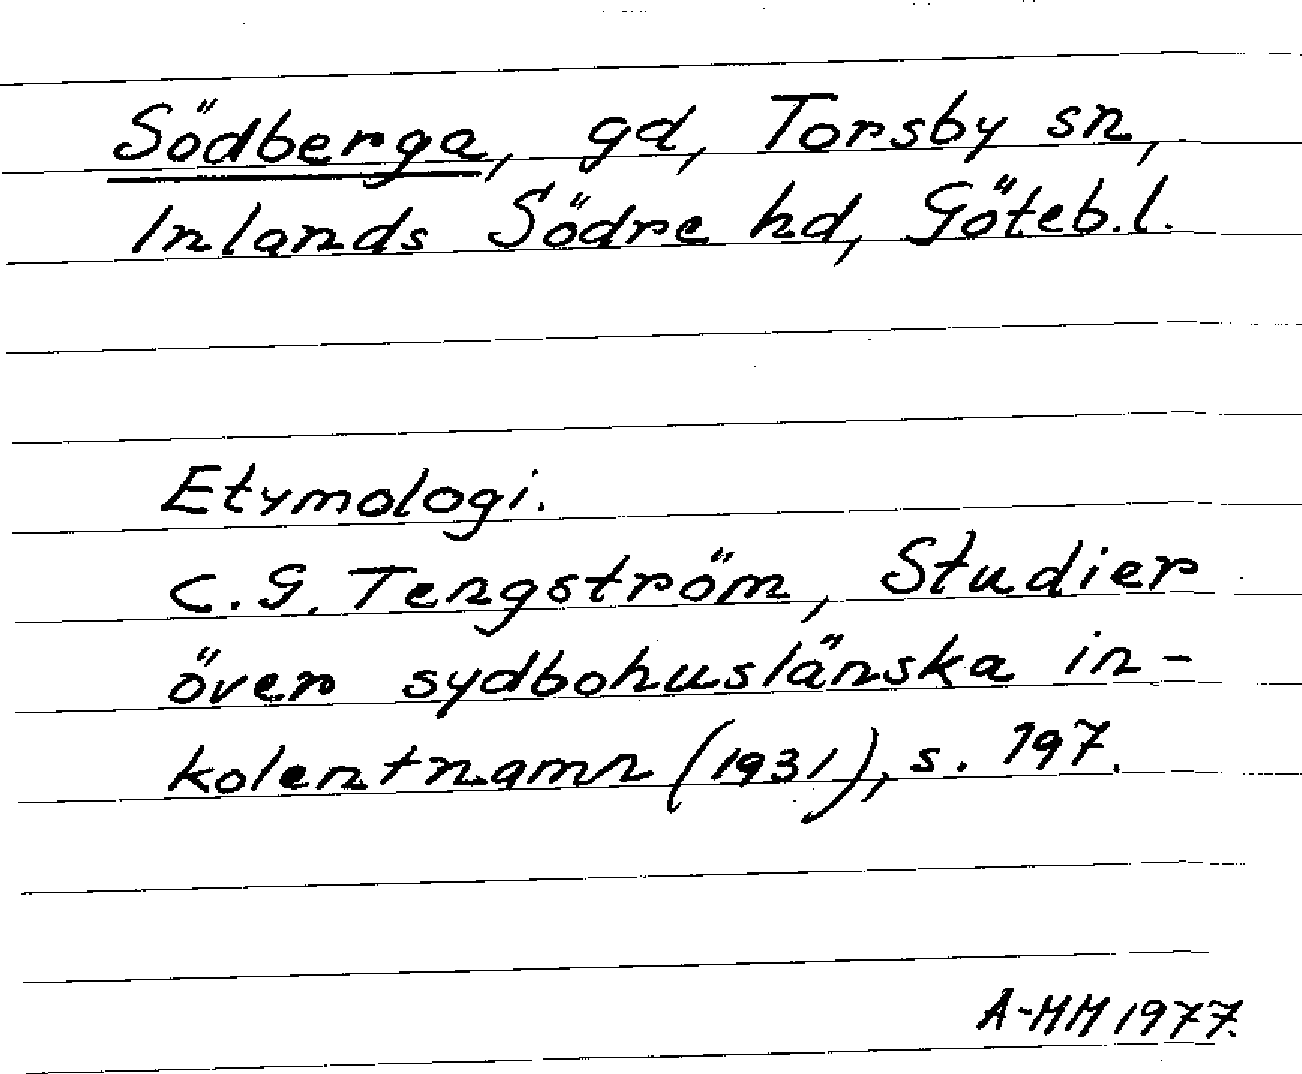 Södberga, gd, Torsby sn,
Inlands Södre hd, Göteb.l.
Etymologi.
C.G. Tengström, Studier
över sydbohuslänska in-
kolentnamn (1931), s. 197.
A-MM 1977.